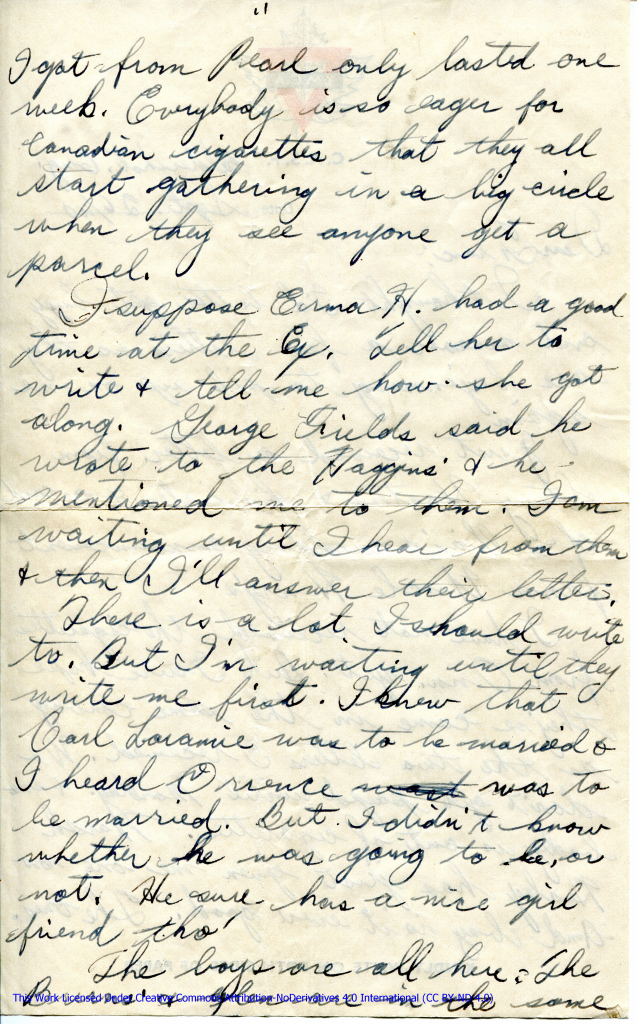 "
I got from Pearl only lasted one
week. Everybody is so eager for
Canadian cigarettes that they all
start gathering in a big circle
when they see anyone get a
parcel.
I suppose Erma H. had a good
time at the Ex. Tell her to
write & tell me how she got
along. George Fields said he
wrote to the Haggins' & he
mentioned me to them. I am
waiting until I hear from them
& then I'll answer their letter.
There is a lot I should write
to. But I'm waiting until they
write me first. I knew that
Carl Loramie was to be married &
I heard Orrence was to
be married. But I didn't know
whether he was going to be, or
not. He sure has a nice girl
friend tho'
The boys are all here. The
in the same
This Work Licensed Under Creative Commons Attribution-NoDerivatives 4.0 International (CC BY-ND 4.0)